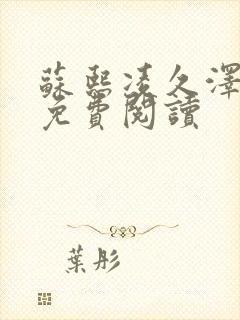 蘇熙凌久澤
免費閱讀
葉彤